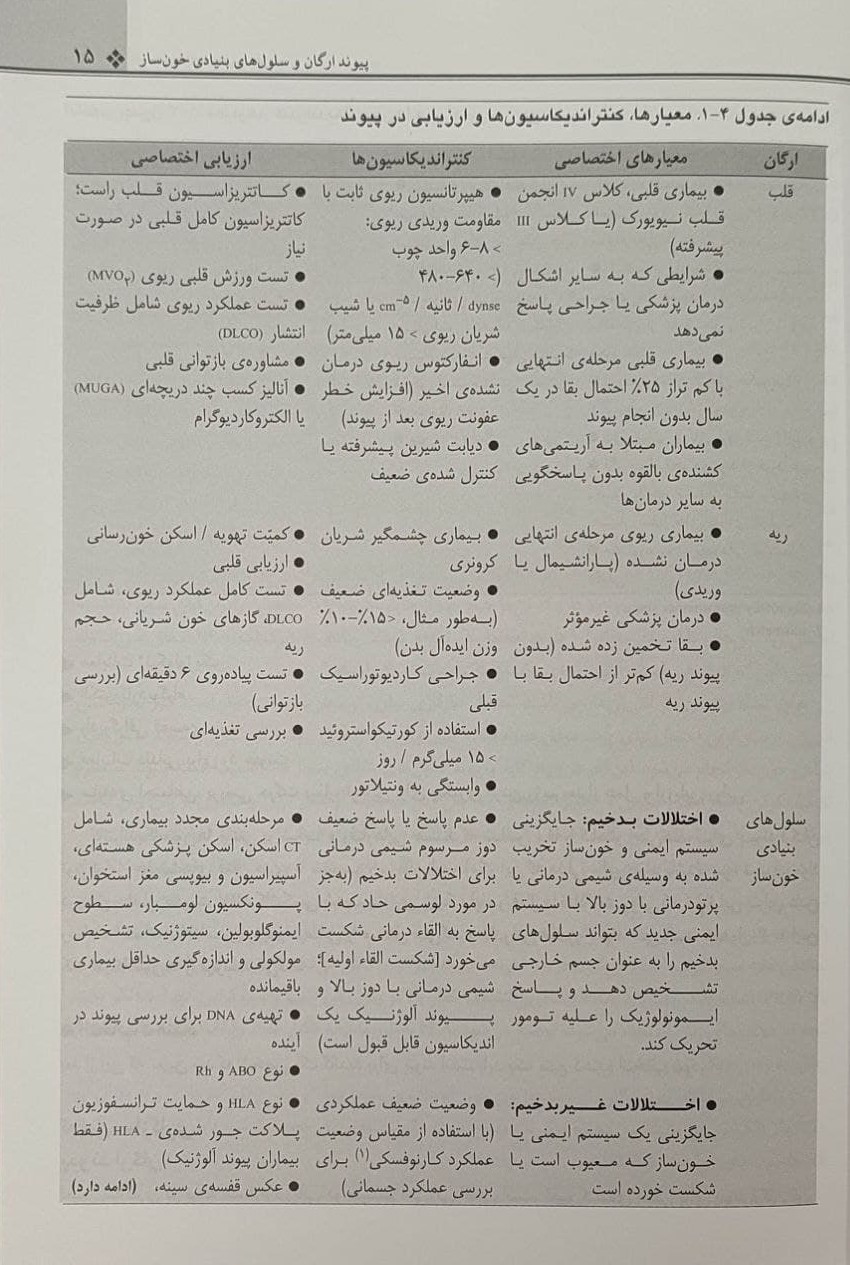 پیوند ارگان و سلول‌های بنیادی خون‌ساز ❖ ۱۵
ادامه‌ی جدول ۴-۱. معیارها، کنتراندیکاسیون‌ها و ارزیابی در پیوند
ارگان
معیارهای اختصاصی
کنتراندیکاسیون‌ها
ارزیابی اختصاصی
قلب
● بیماری قلبی، کلاس IV انجمن
قلب نیویورک (یا کلاس III
پیشرفته)
● شرایطی که به سایر اشکال
درمان پزشکی یا جراحی پاسخ
نمی‌دهد
● بیماری قلبی مرحله‌ی انتهایی
با کم تراز ۲۵٪ احتمال بقا در یک
سال بدون انجام پیوند
● بیماران مبتلا به آریتمی‌های
کشنده‌ی بالقوه بدون پاسخگویی
به سایر درمان‌ها
● هیپرتانسیون ریوی ثابت با
مقاومت وریدی ریوی:
> ۸-۶ واحد چوب
(> ۶۴۰-۴۸۰
dynse / ثانیه / cm⁻⁵ یا شیب
شریان ریوی > ۱۵ میلی‌متر)
● انفارکتوس ریوی درمان
نشده‌ی اخیر (افزایش خطر
عفونت ریوی بعد از پیوند)
● دیابت شیرین پیشرفته یا
کنترل شده‌ی ضعیف
● کاتتریزاسیون قلب راست؛
کاتتریزاسیون کامل قلبی در صورت
نیاز
● تست ورزش قلبی ریوی (MVO₂)
● تست عملکرد ریوی شامل ظرفیت
انتشار (DLCO)
● مشاوره‌ی بازتوانی قلبی
● آنالیز کسب چند دریچه‌ای (MUGA)
یا الکتروکاردیوگرام
ریه
● بیماری ریوی مرحله‌ی انتهایی
درمان نشده (پارانشیمال یا
وریدی)
● درمان پزشکی غیرمؤثر
● بقا تخمین زده شده (بدون
پیوند ریه) کم‌تر از احتمال بقا با
پیوند ریه
● بیماری چشمگیر شریان
کرونری
● وضعیت تغذیه‌ای ضعیف
(به‌طور مثال، <۱۵٪-۱۰٪
وزن ایده‌آل بدن)
● جراحی کاردیوتوراسیک
قبلی
● استفاده از کورتیکواستروئید
> ۱۵ میلی‌گرم / روز
● وابستگی به ونتیلاتور
● کمیّت تهویه / اسکن خون‌رسانی
● ارزیابی قلبی
● تست کامل عملکرد ریوی، شامل
DLCO، گازهای خون شریانی، حجم
ریه
● تست پیاده‌روی ۶ دقیقه‌ای (بررسی
بازتوانی)
● بررسی تغذیه‌ای
سلول‌های
بنیادی
خون‌ساز
● اختلالات بدخیم: جایگزینی
سیستم ایمنی و خون‌ساز تخریب
شده به وسیله‌ی شیمی درمانی یا
پرتودرمانی با دوز بالا با سیستم
ایمنی جدید که بتواند سلول‌های
بدخیم را به عنوان جسم خارجی
تشخیص دهد و پاسخ
ایمونولوژیک را علیه تومور
تحریک کند.
● عدم پاسخ یا پاسخ ضعیف
دوز مرسوم شیمی درمانی
برای اختلالات بدخیم (به‌جز
در مورد لوسمی حاد که با
پاسخ به القاء درمانی شکست
می‌خورد [شکست القاء اولیه]؛
شیمی درمانی با دوز بالا و
پیوند آلوژنیک یک
اندیکاسیون قابل قبول است)
● مرحله‌بندی مجدد بیماری، شامل
CT اسکن، اسکن پزشکی هسته‌ای،
آسپیراسیون و بیوپسی مغز استخوان،
پونکسیون لومبار، سطوح
ایمنوگلوبولین، سیتوژنیک، تشخیص
مولکولی و اندازه‌گیری حداقل بیماری
باقیمانده
● تهیه‌ی DNA برای بررسی پیوند در
آینده
● نوع ABO و Rh
● اختلالات غیربدخیم:
جایگزینی یک سیستم ایمنی یا
خون‌ساز که معیوب است یا
شکست خورده است
● وضعیت ضعیف عملکردی
(با استفاده از مقیاس وضعیت
عملکرد کارنوفسکی(۱) برای
بررسی عملکرد جسمانی)
● نوع HLA و حمایت ترانسفوزیون
پلاکت جور شده‌ی ـ HLA (فقط
بیماران پیوند آلوژنیک)
● عکس قفسه‌ی سینه، (ادامه دارد)